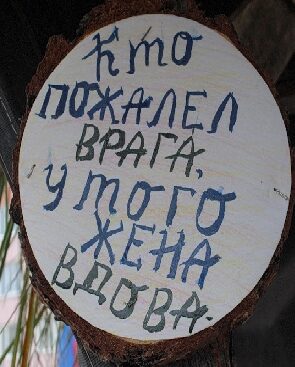 Кто
ПОЖАЛЕЛ
ВРАГА,
У ТОГО
ЖЕНА
ВДОВА.